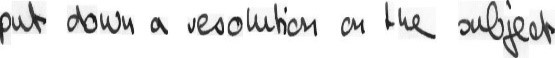 put down a resolution on the subject